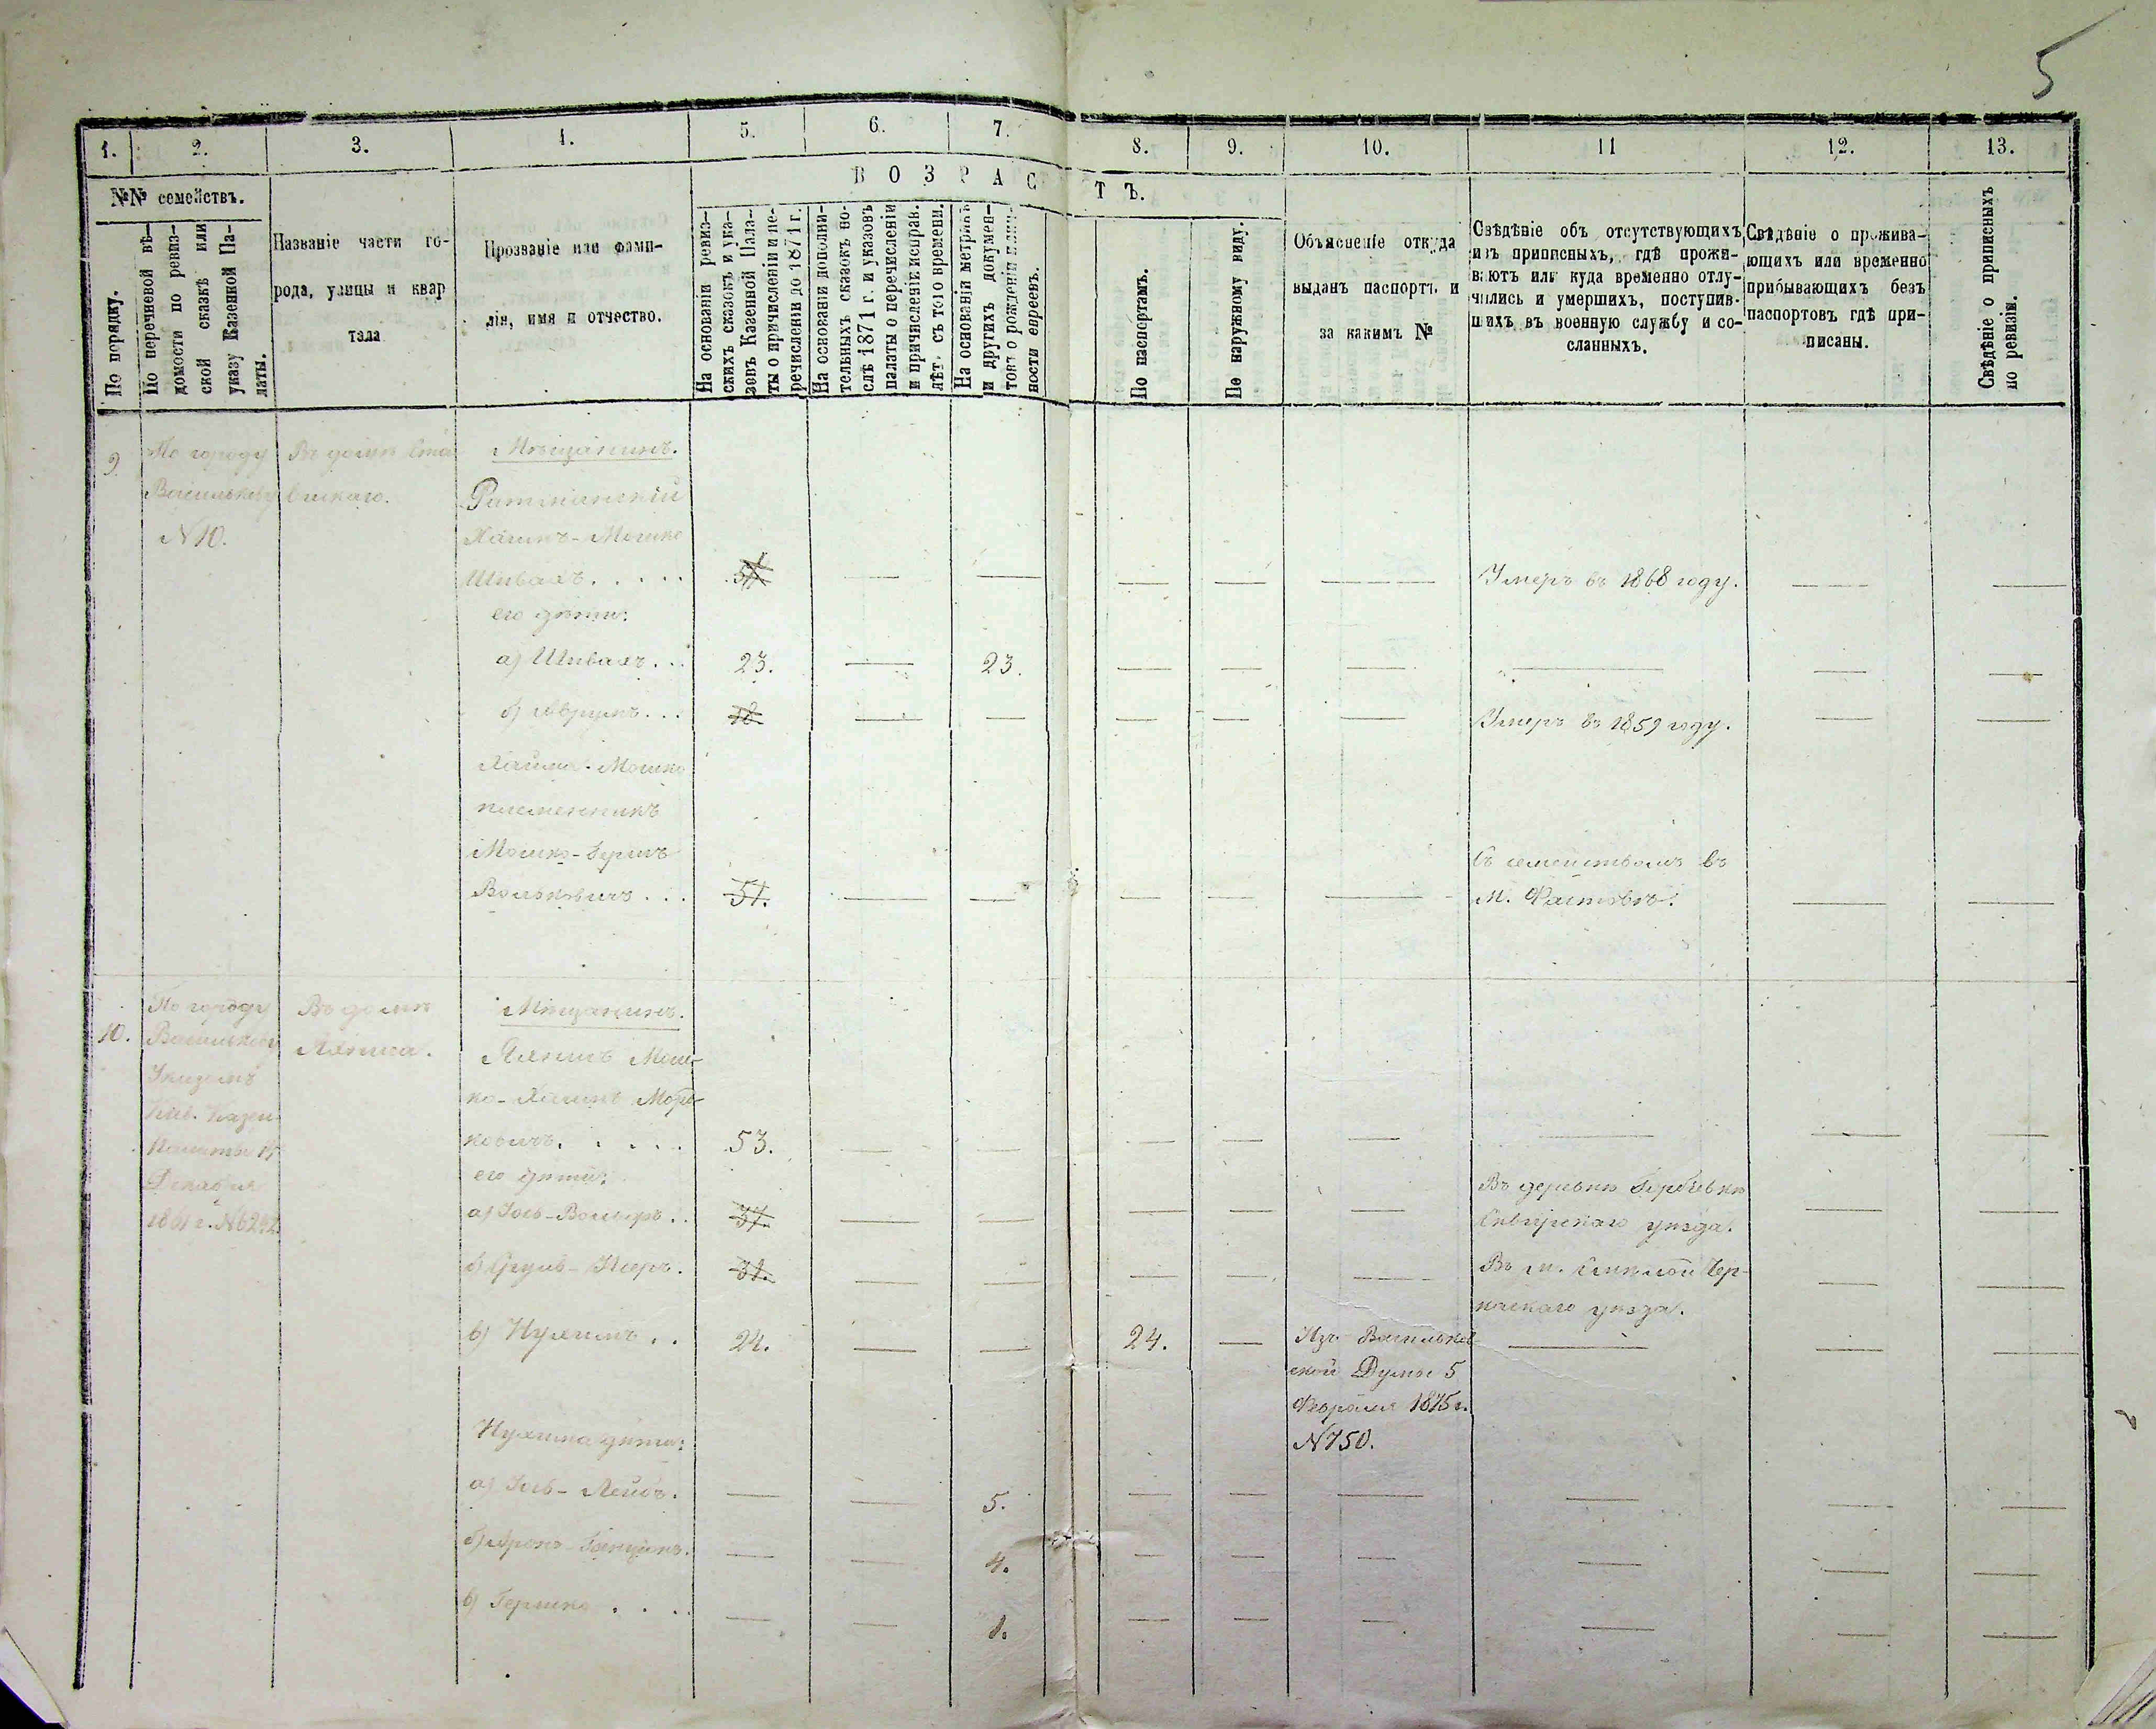 5
1. 2. 3. 4. 5. 6. 7. 8. 9. 10. 11 12. 13.
ВОЗРАСТЪ.
№№ семействъ.
По порядку.
По перечневой вѣ-
домости по ревиз-
ской сказкѣ или
указу Казенной Па-
латы.
Названіе части го-
рода, улицы и квар
тала
Прозваніе или фами-
лія, имя и отчество.
На основаніи ревиз-
скихъ сказокъ и ука-
зовъ Казенной Пала-
ты о причисленіи и пе-
речисленіи до 1871 г.
На основаніи дополни-
тельныхъ сказокъ по-
слѣ 1871 г. и указовъ
палаты о перечисленіи
и причисленіи исправ.
лѣт. съ того времени.
На основаніи метрикъ
и другихъ докумен-
товъ о рожденіи
ности евреевъ.
По паспортамъ.
По наружному виду.
Объясненіе откуда
выданъ паспортъ и
за какимъ №
Свѣдѣніе объ отсутствующихъ
изъ приписныхъ, гдѣ прожи-
ваютъ или куда временно отлу-
чились и умершихъ, поступив-
шихъ въ военную службу и со-
сланныхъ.
Свѣдѣніе о прожива-
ющихъ или временно
прибывающихъ безъ
паспортовъ гдѣ при-
писаны.
Свѣдѣніе о приписныхъ
по ревизіи.
9 По городу Въ домѣ Мѣщанинъ.
Василькову
N 10. Хаимъ-Мошко
Шивахъ. . . . . Умеръ въ 1868 году.
его дѣти:
а) Шивахъ. . . 23. — 23.
б) Аврумъ. . . 18. Умеръ въ 1859 году.
Хаима-Мошко
племянникъ
Мошко-Берко Съ семействомъ въ
Волковичъ . . . 51. М. Фастовѣ.
По городу Въ домѣ Мѣщанинъ.
10. Василькову
Указомъ Мош-
Кіев. Казен. ко-Хаимъ
Палаты 15 ковичъ. . . . . 53.
Декабря его дѣти: Въ деревнѣ
1861 г. N 6292. 37. Сквирскаго уѣзда.
31. Въ м. Смѣлой Чер-
каскаго уѣзда.
в) Нухимъ . . 24. — — 24. — Изъ Васильков
ской Думы 5
Февраля 1875 г.
Нухима дѣти: N 750.
а) Іось-Лейбъ. — — 5.
б) Аронъ- — — 4.
в) Гершко . . . — — 1.